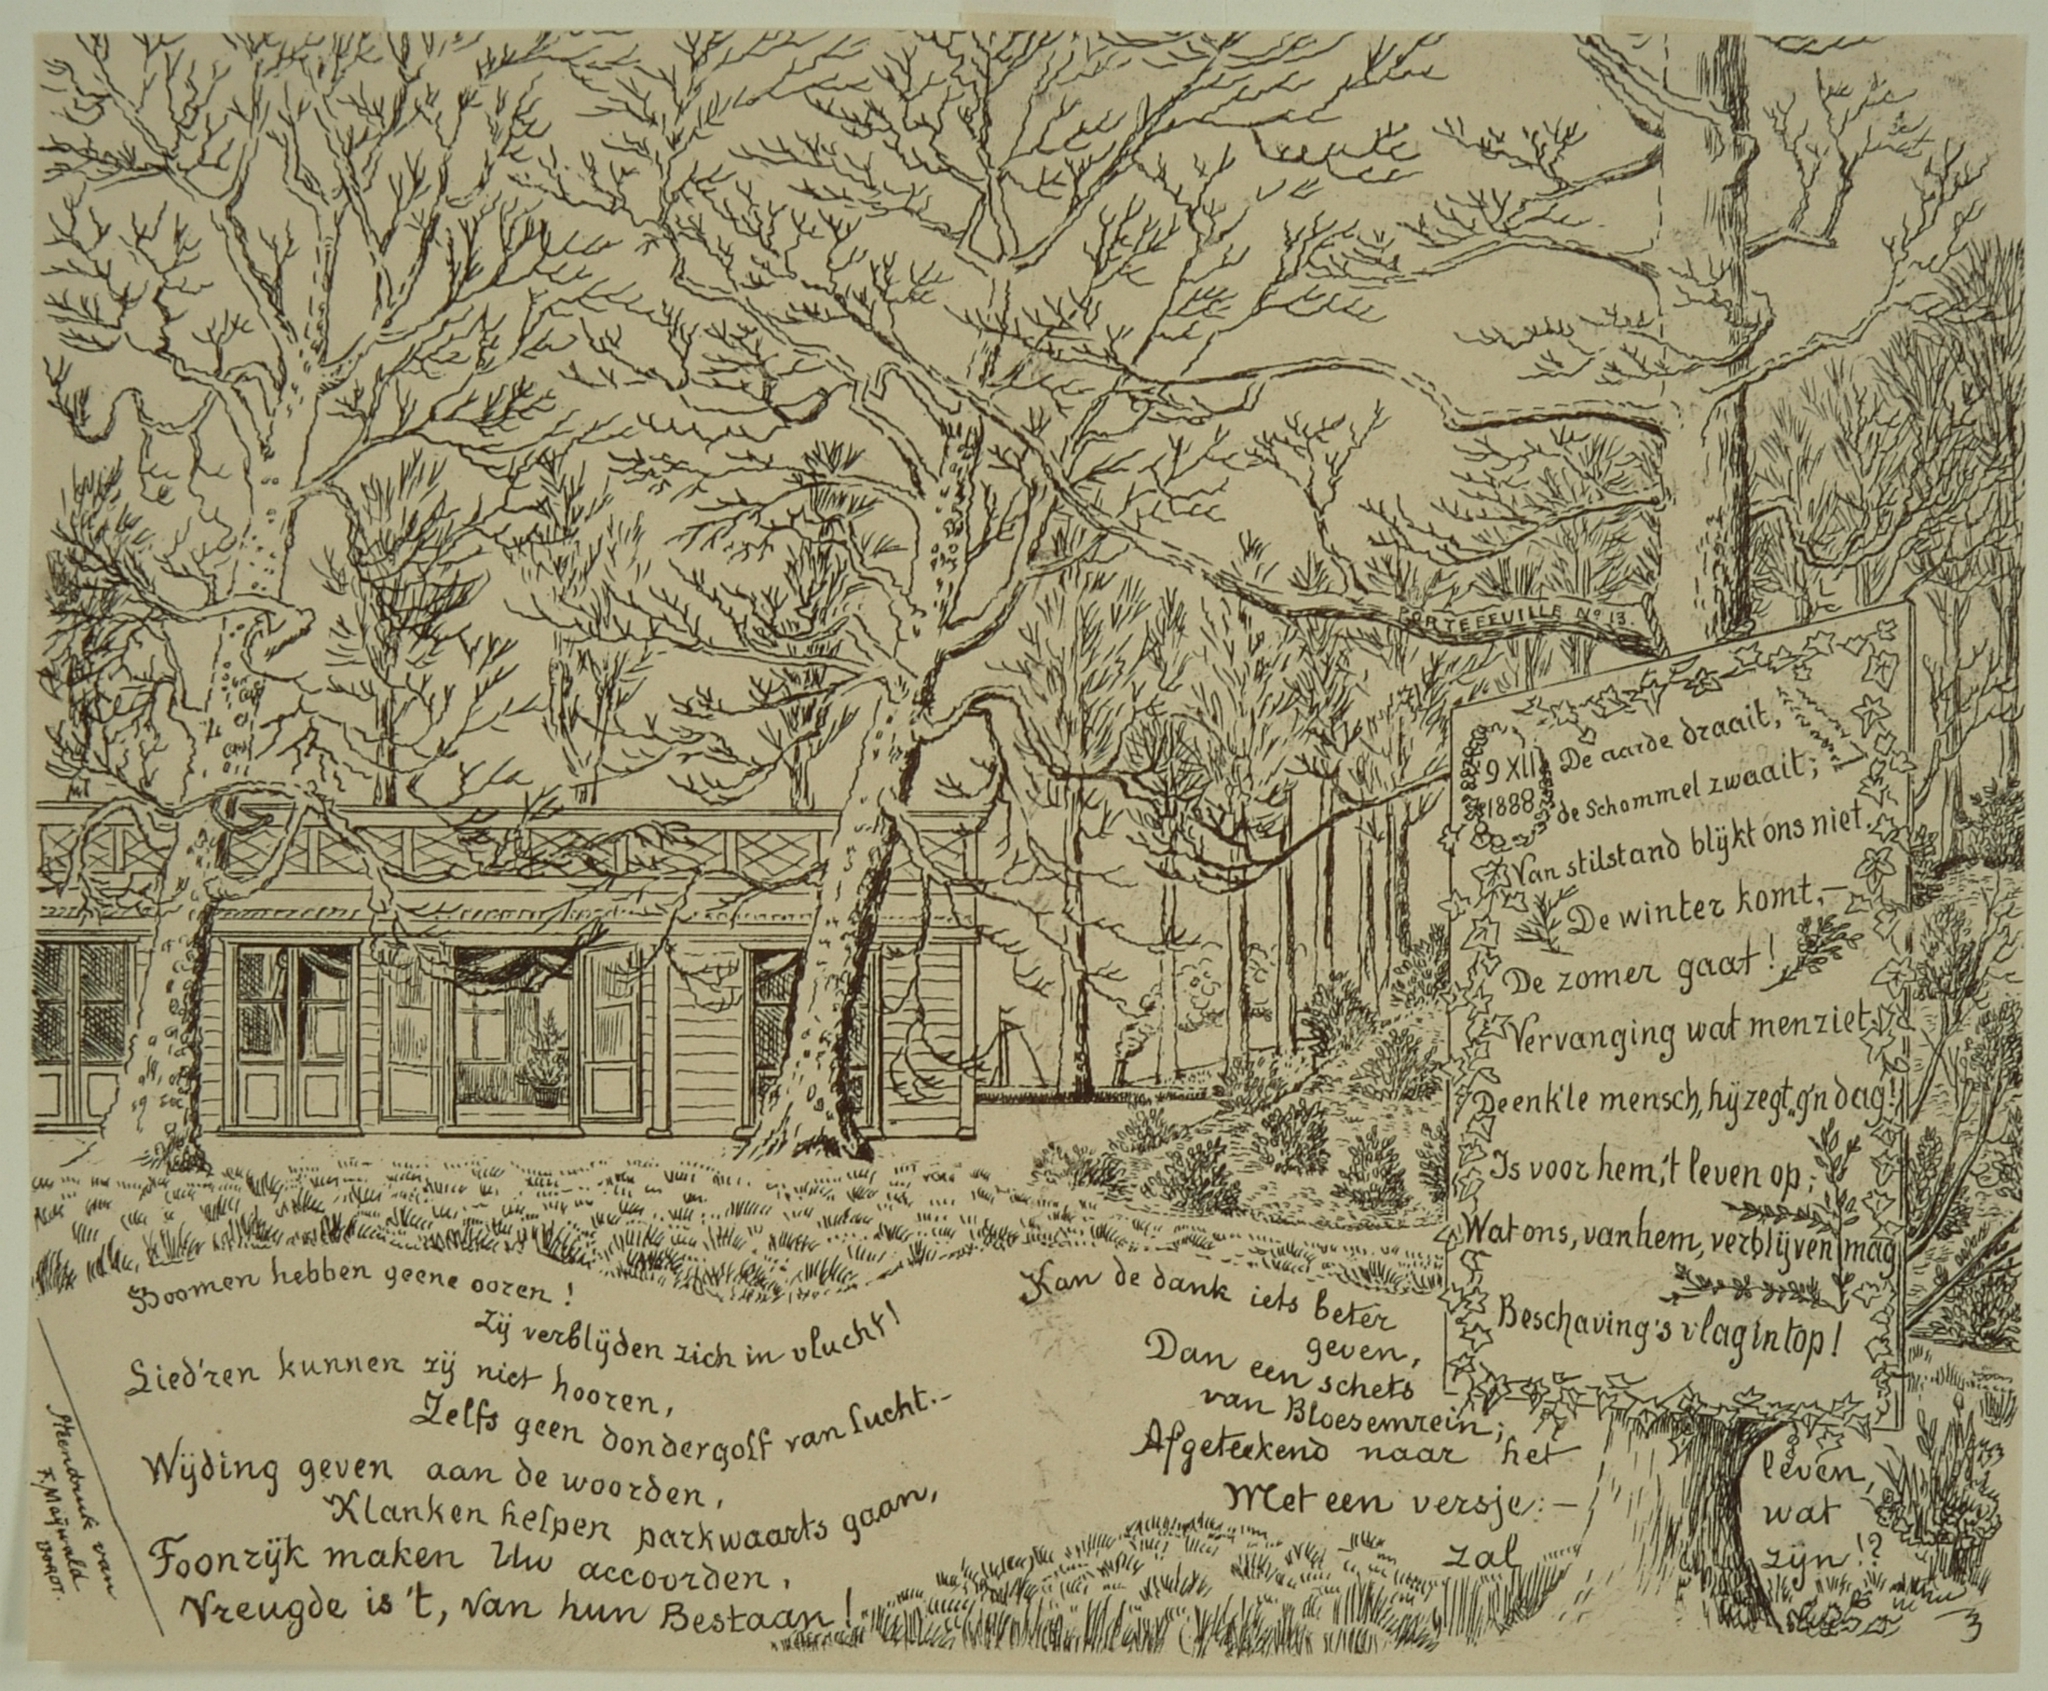 PORTEFEUILLE No 13.
9 XII
1888
De aarde draait,
de Schommel zwaait; —
Van stilstand blijkt ons niet.
De winter komt, —
De zomer gaat!
Vervanging wat men ziet.
De enk'le mensch, hij zegt „g'n dag!
Is voor hem, 't leven op;
Wat ons, van hem, verblijven mag
Beschaving's vlag in top!
Boomen hebben geene ooren!
Zij verblijden zich in vlucht!
Lied'ren kunnen zij niet hooren,
Zelfs geen dondergolf van lucht. —
Wijding geven aan de woorden,
Klanken helpen parkwaarts gaan,
Toonrijk maken Uw accoorden,
Vreugde is 't, van hun Bestaan!
Kan de dank iets beter
geven,
Dan een schets
van Bloesemrein;
Afgeteekend naar het
leven,
Met een versje: —
wat
zal
zijn!?
Steendruk van
F. Maijwald
DORDT.
3